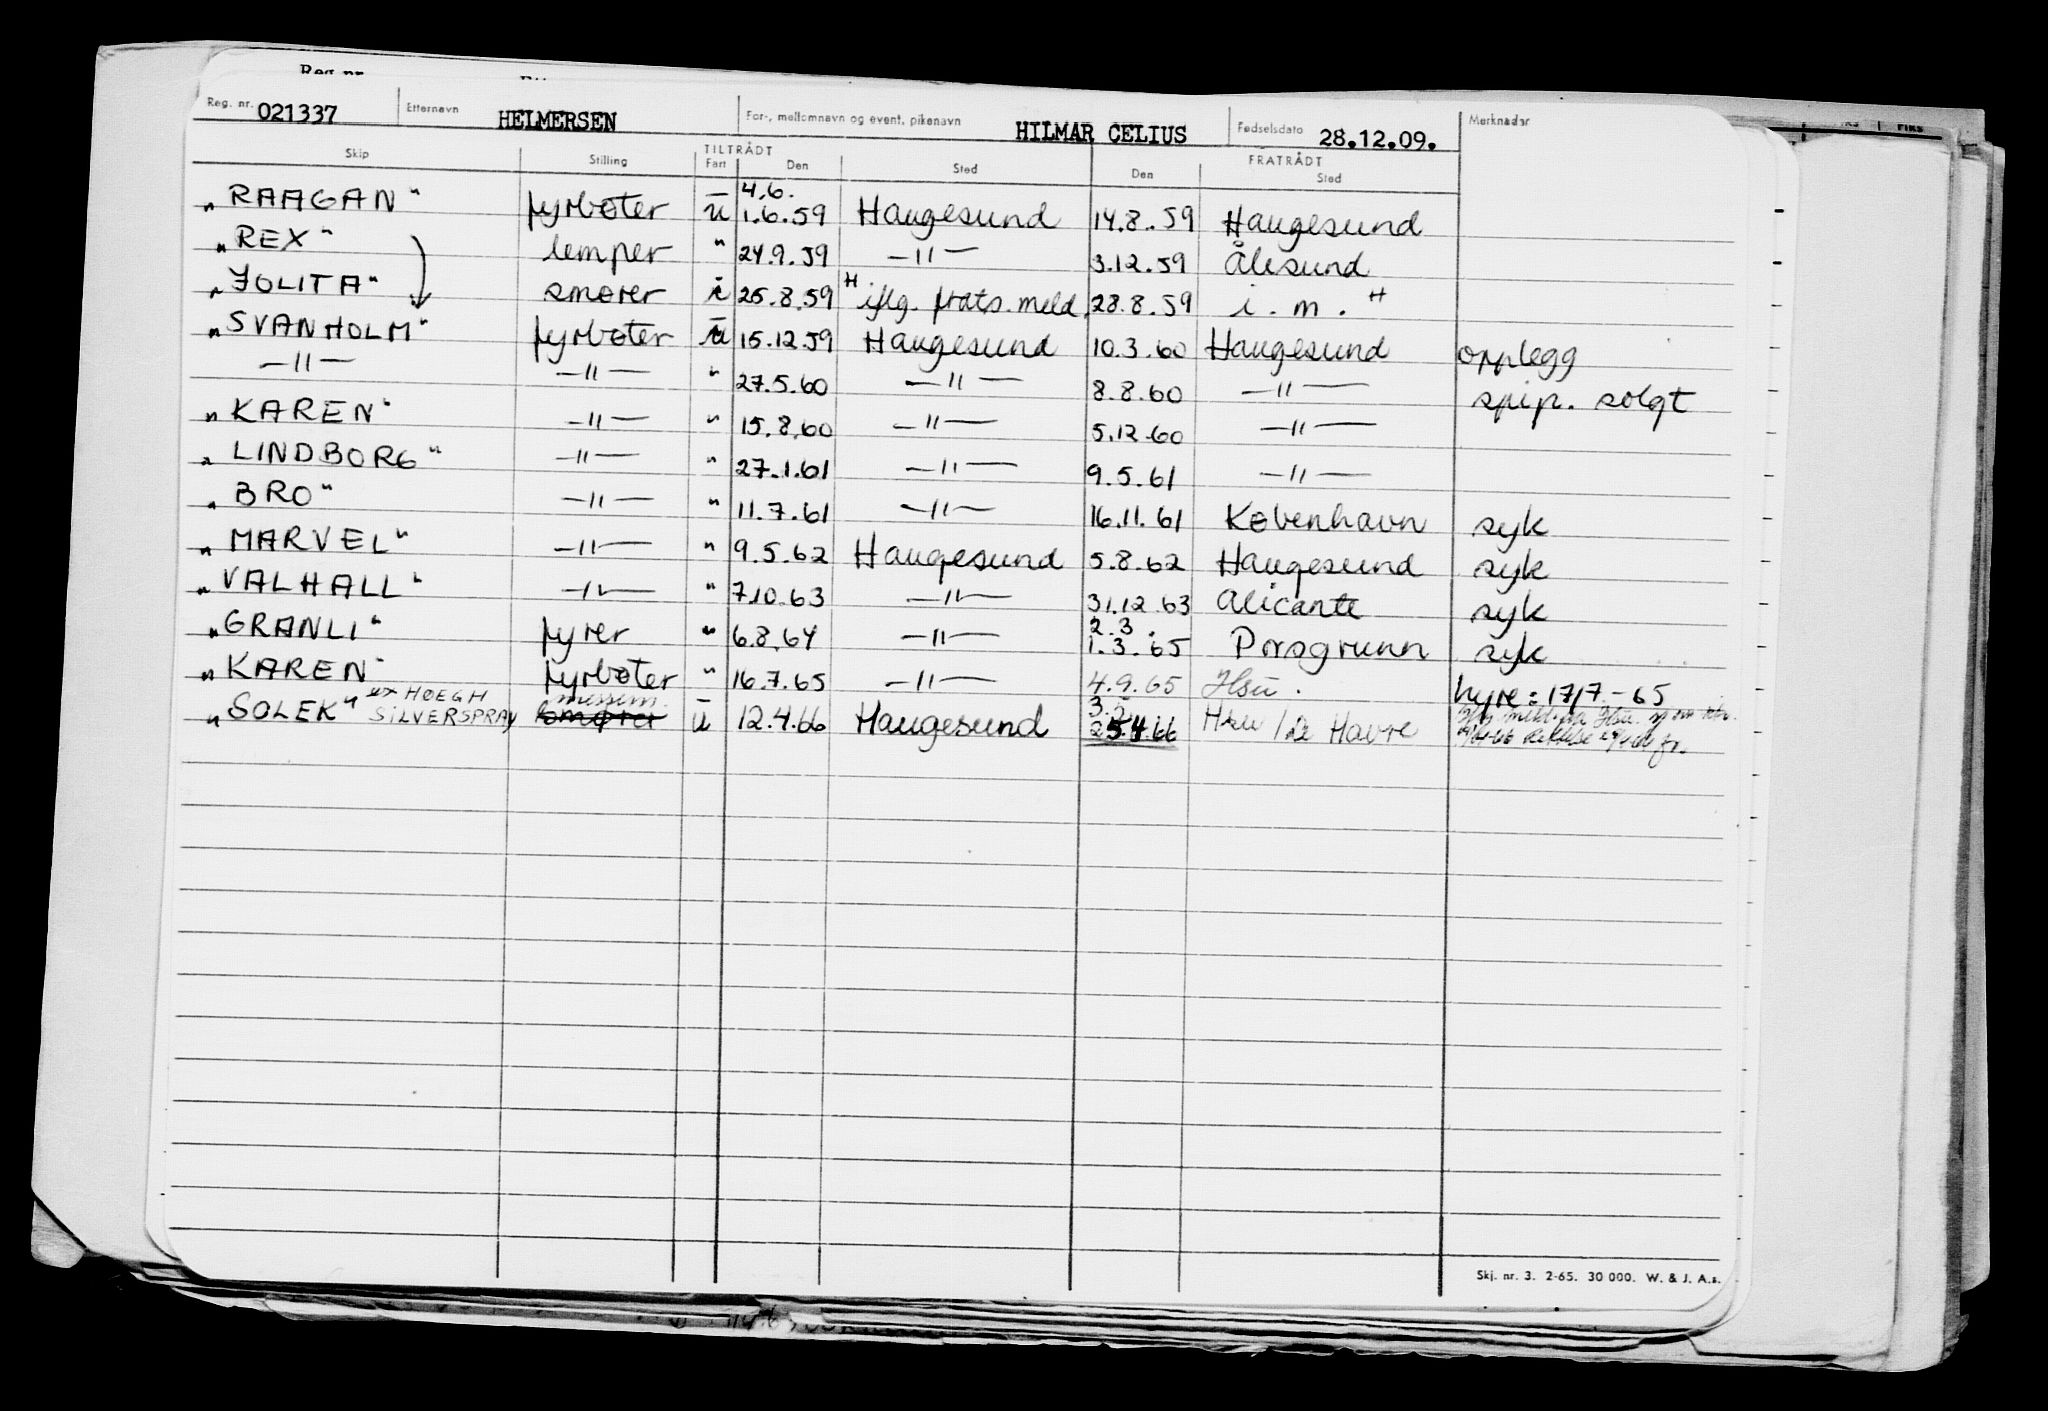 Reg. nr. 021337 Etternavn HELMERSEN For-, mellomnavn og event. pikenavn HILMAR CELIUS Fødselsdato 28.12.09. Merknader
Skip Stilling TILTRÅDT Fart Den Sted FRATRÅDT Den Sted
"RAAGAN" fyrbøter u 4.6. 1.6.59 Haugesund 14.8.59 Haugesund
"REX" lemper " 24.9.59 -"- 3.12.59 Ålesund
"JOLITA" smører i 25.8.59 "iflg. frats. meld. 28.8.59 i. m. "
"SVANHOLM" fyrbøter u 15.12.59 Haugesund 10.3.60 Haugesund opplegg
-"- -"- " 27.5.60 -"- 8.8.60 -"- spip. solgt
"KAREN" -"- " 15.8.60 -"- 5.12.60 -"-
"LINDBORG" -"- " 27.1.61 -"- 9.5.61 -"-
"BRO" -"- " 11.7.61 -"- 16.11.61 København syk
"MARVEL" -"- " 9.5.62 Haugesund 5.8.62 Haugesund syk
"VALHALL" -"- " 7.10.63 -"- 31.12.63 Alicante syk
"GRANLI" fyrer " 6.8.64 -"- 2.3. 1.3.65 Porsgrunn syk
"KAREN" fyrbøter " 16.7.65 -"- 4.9.65 Hsu. hyre: 17/7.-65
"SOLEK" ex HØEGH SILVERSPRAY messem. smører u 12.4.66 Haugesund 5.4.66 Hsu / Le Havre
Skj. nr. 3. 2-65. 30 000. W. & J. A.s.